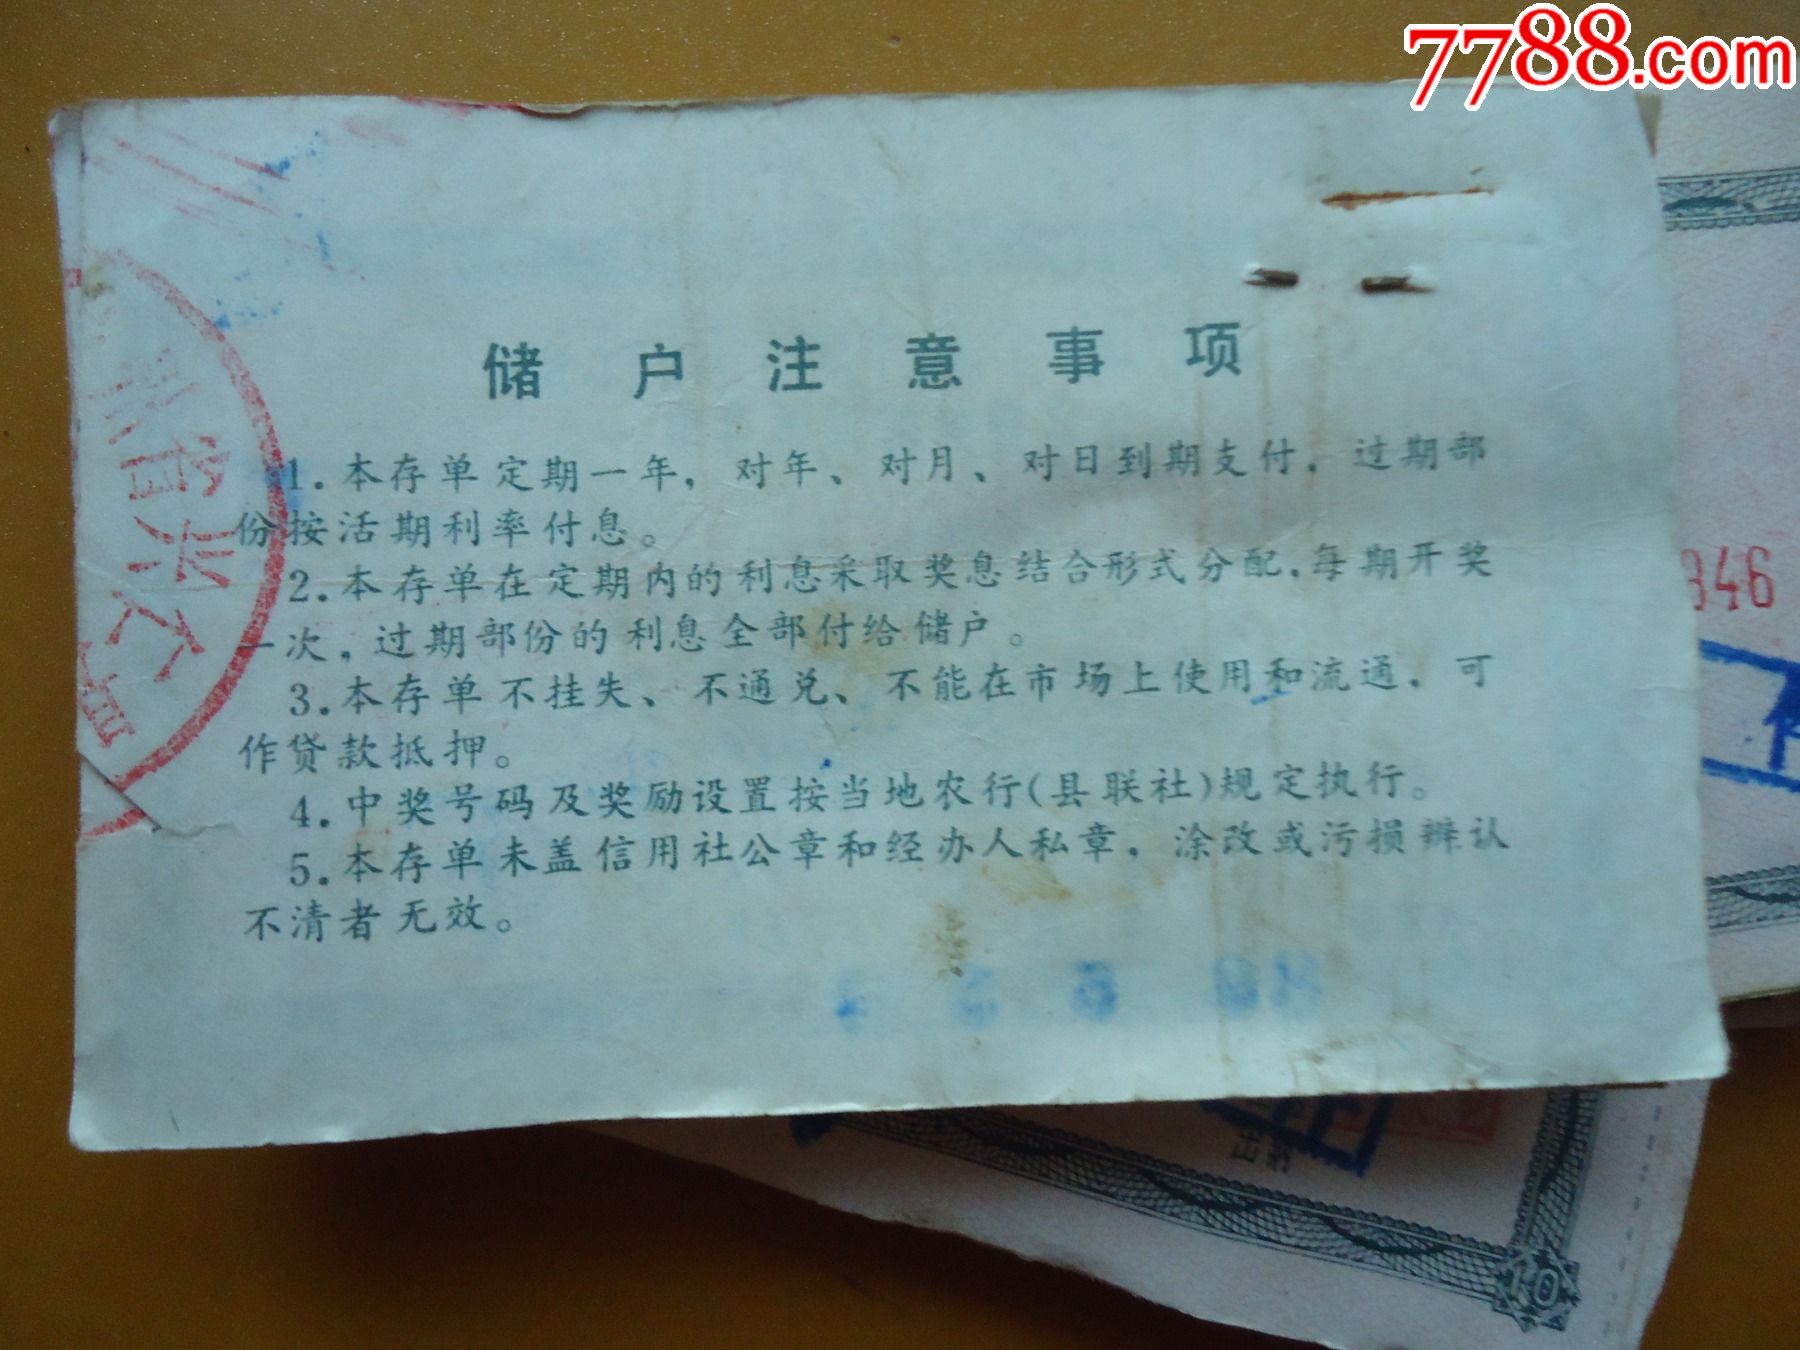 7788.com
储户注意事项
1.本存单定期一年，对年、对月、对日到期支付，过期部
份按活期利率付息。
2.本存单在定期内的利息采取奖息结合形式分配，每期开奖
一次，过期部份的利息全部付给储户。
3.本存单不挂失、不通兑、不能在市场上使用和流通，可
作贷款抵押。
4.中奖号码及奖励设置按当地农行(县联社)规定执行。
5.本存单未盖信用社公章和经办人私章，涂改或污损辨认
不清者无效。
346
10